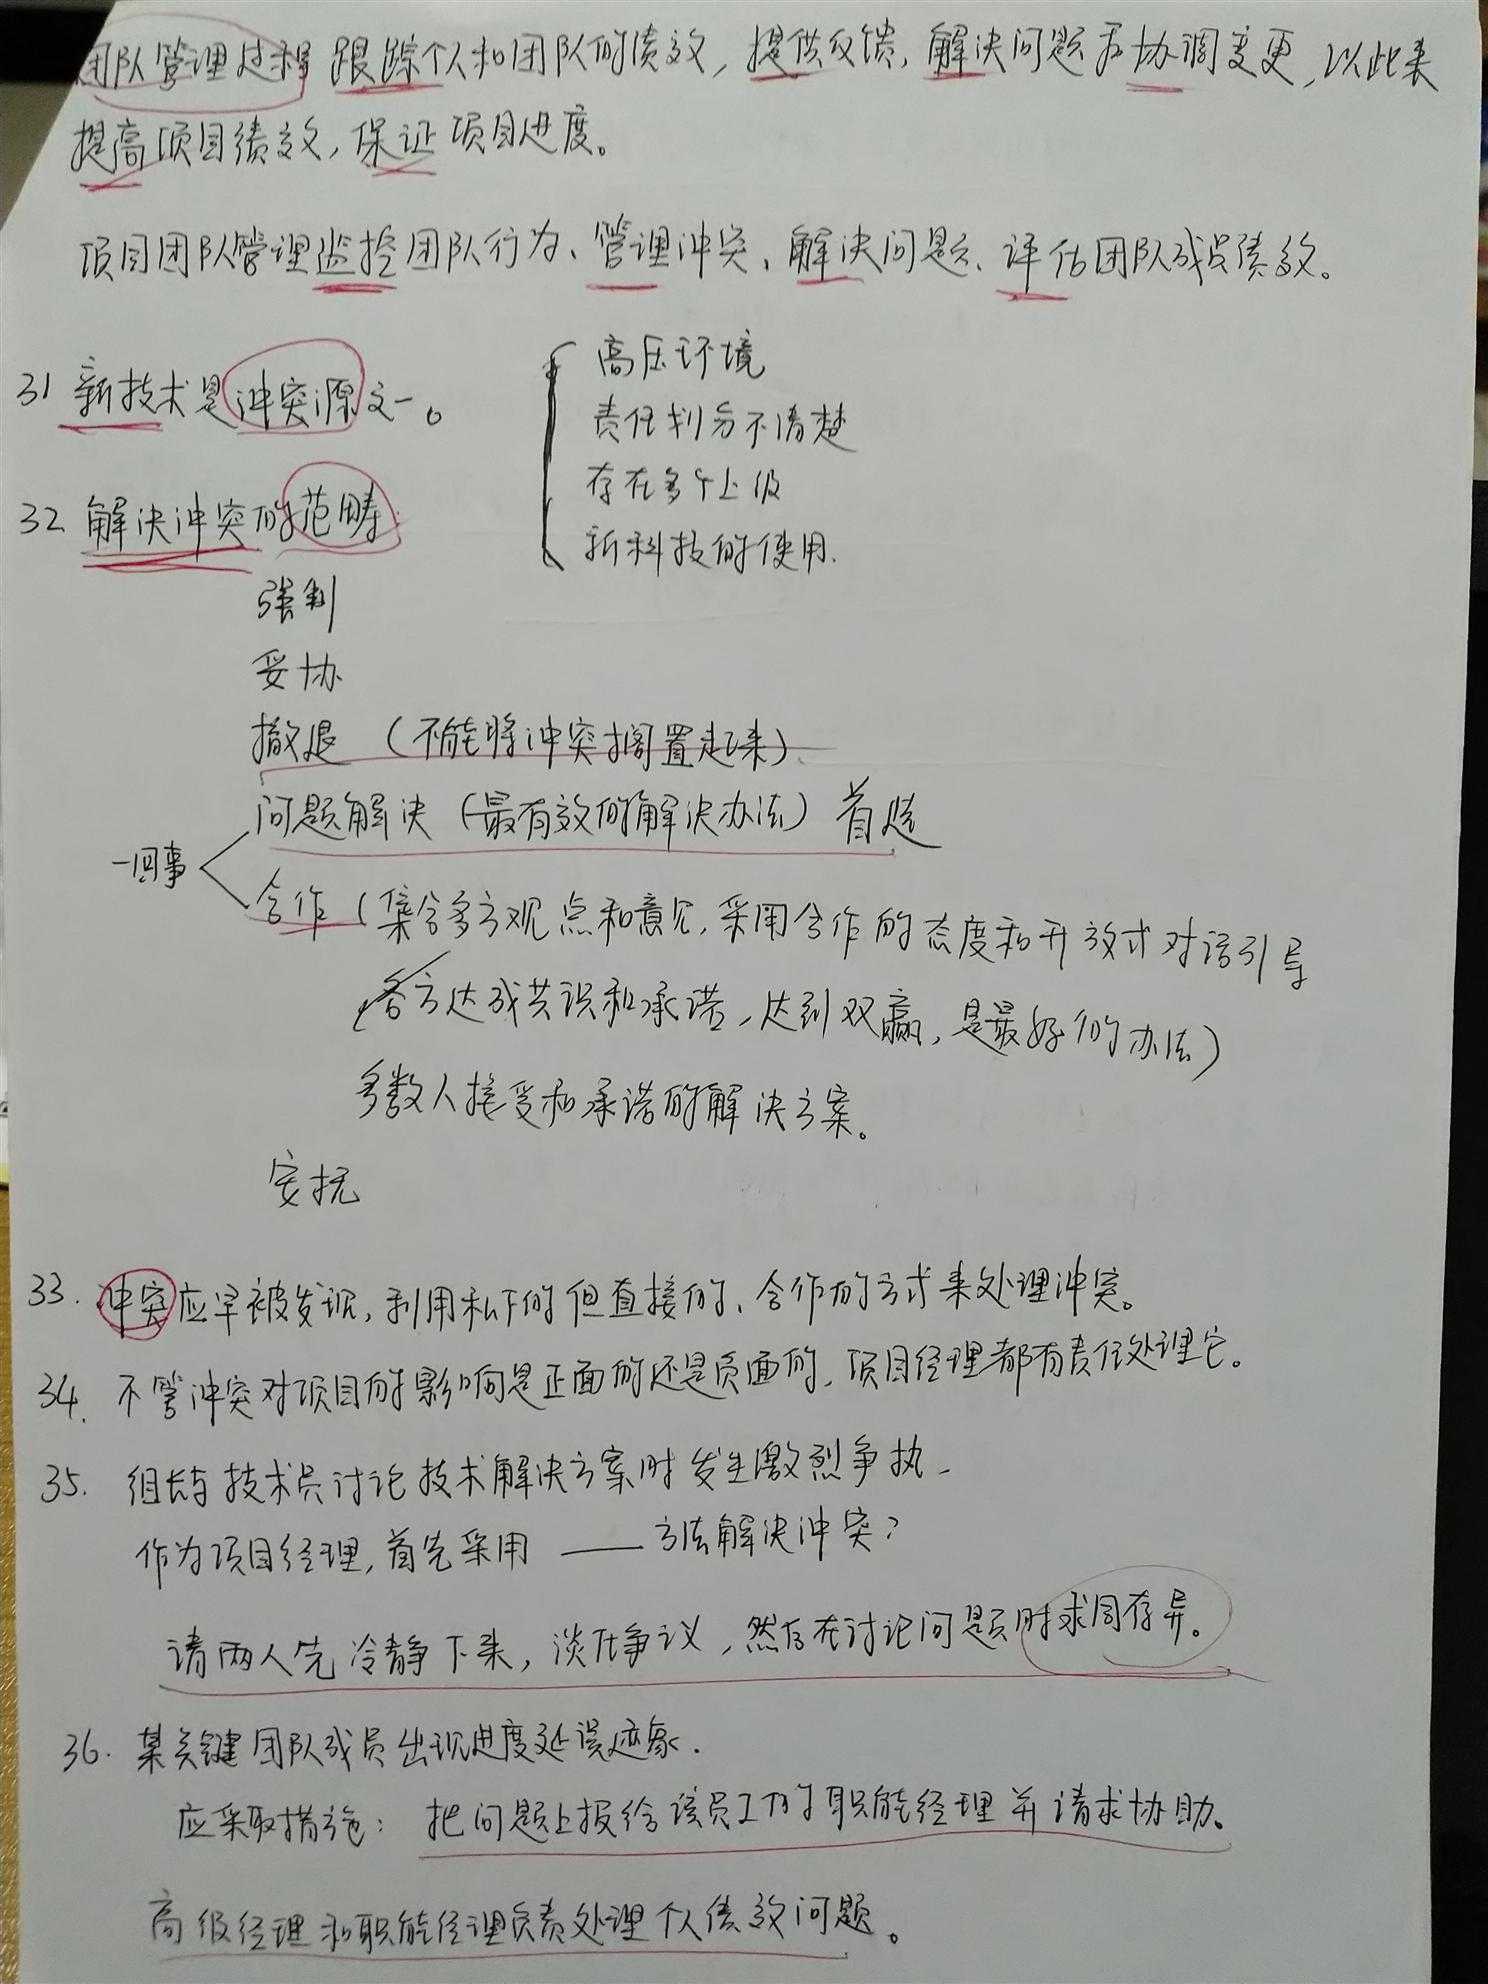 团队管理过程 跟踪个人和团队的绩效，提供反馈，解决问题和协调变更，以此来
提高项目绩效，保证项目进度。
项目团队管理监控团队行为、管理冲突、解决问题、评估团队成员绩效。
31 新技术是冲突源之一。
高压环境
责任划分不清楚
存在多个上级
新科技的使用.
32. 解决冲突的范畴
强制
妥协
撤退（不能将冲突搁置起来）
问题解决（最有效的解决办法）首选
一回事
合作（集合多方观点和意见，采用合作的态度和开放式对话引导
各方达成共识和承诺，达到双赢，是最好的办法）
多数人接受和承诺的解决方案。
安抚
33. 冲突应早被发现，利用私下的但直接的、合作的方式来处理冲突。
34. 不管冲突对项目的影响是正面的还是负面的，项目经理都有责任处理它。
35. 组长与技术员讨论技术解决方案时发生激烈争执.
作为项目经理，首先采用 ____ 方法解决冲突？
请两人先冷静下来，淡化争议，然后在讨论问题时求同存异。
36. 某关键团队成员出现进度延误迹象.
应采取措施：把问题上报给该员工的职能经理并请求协助。
高级经理和职能经理负责处理个人绩效问题。